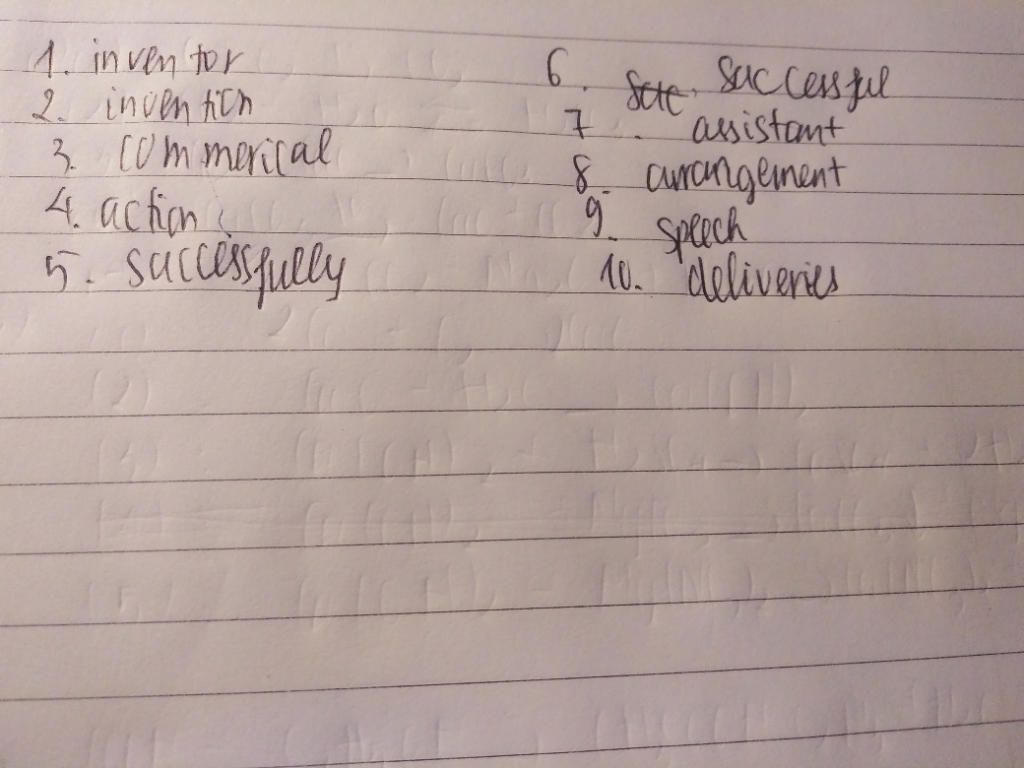 1. inventor
2. invention
3. commerical
4. action
5. successfully
6. successful
7. assistant
8. arrangement
9. speech
10. deliveries